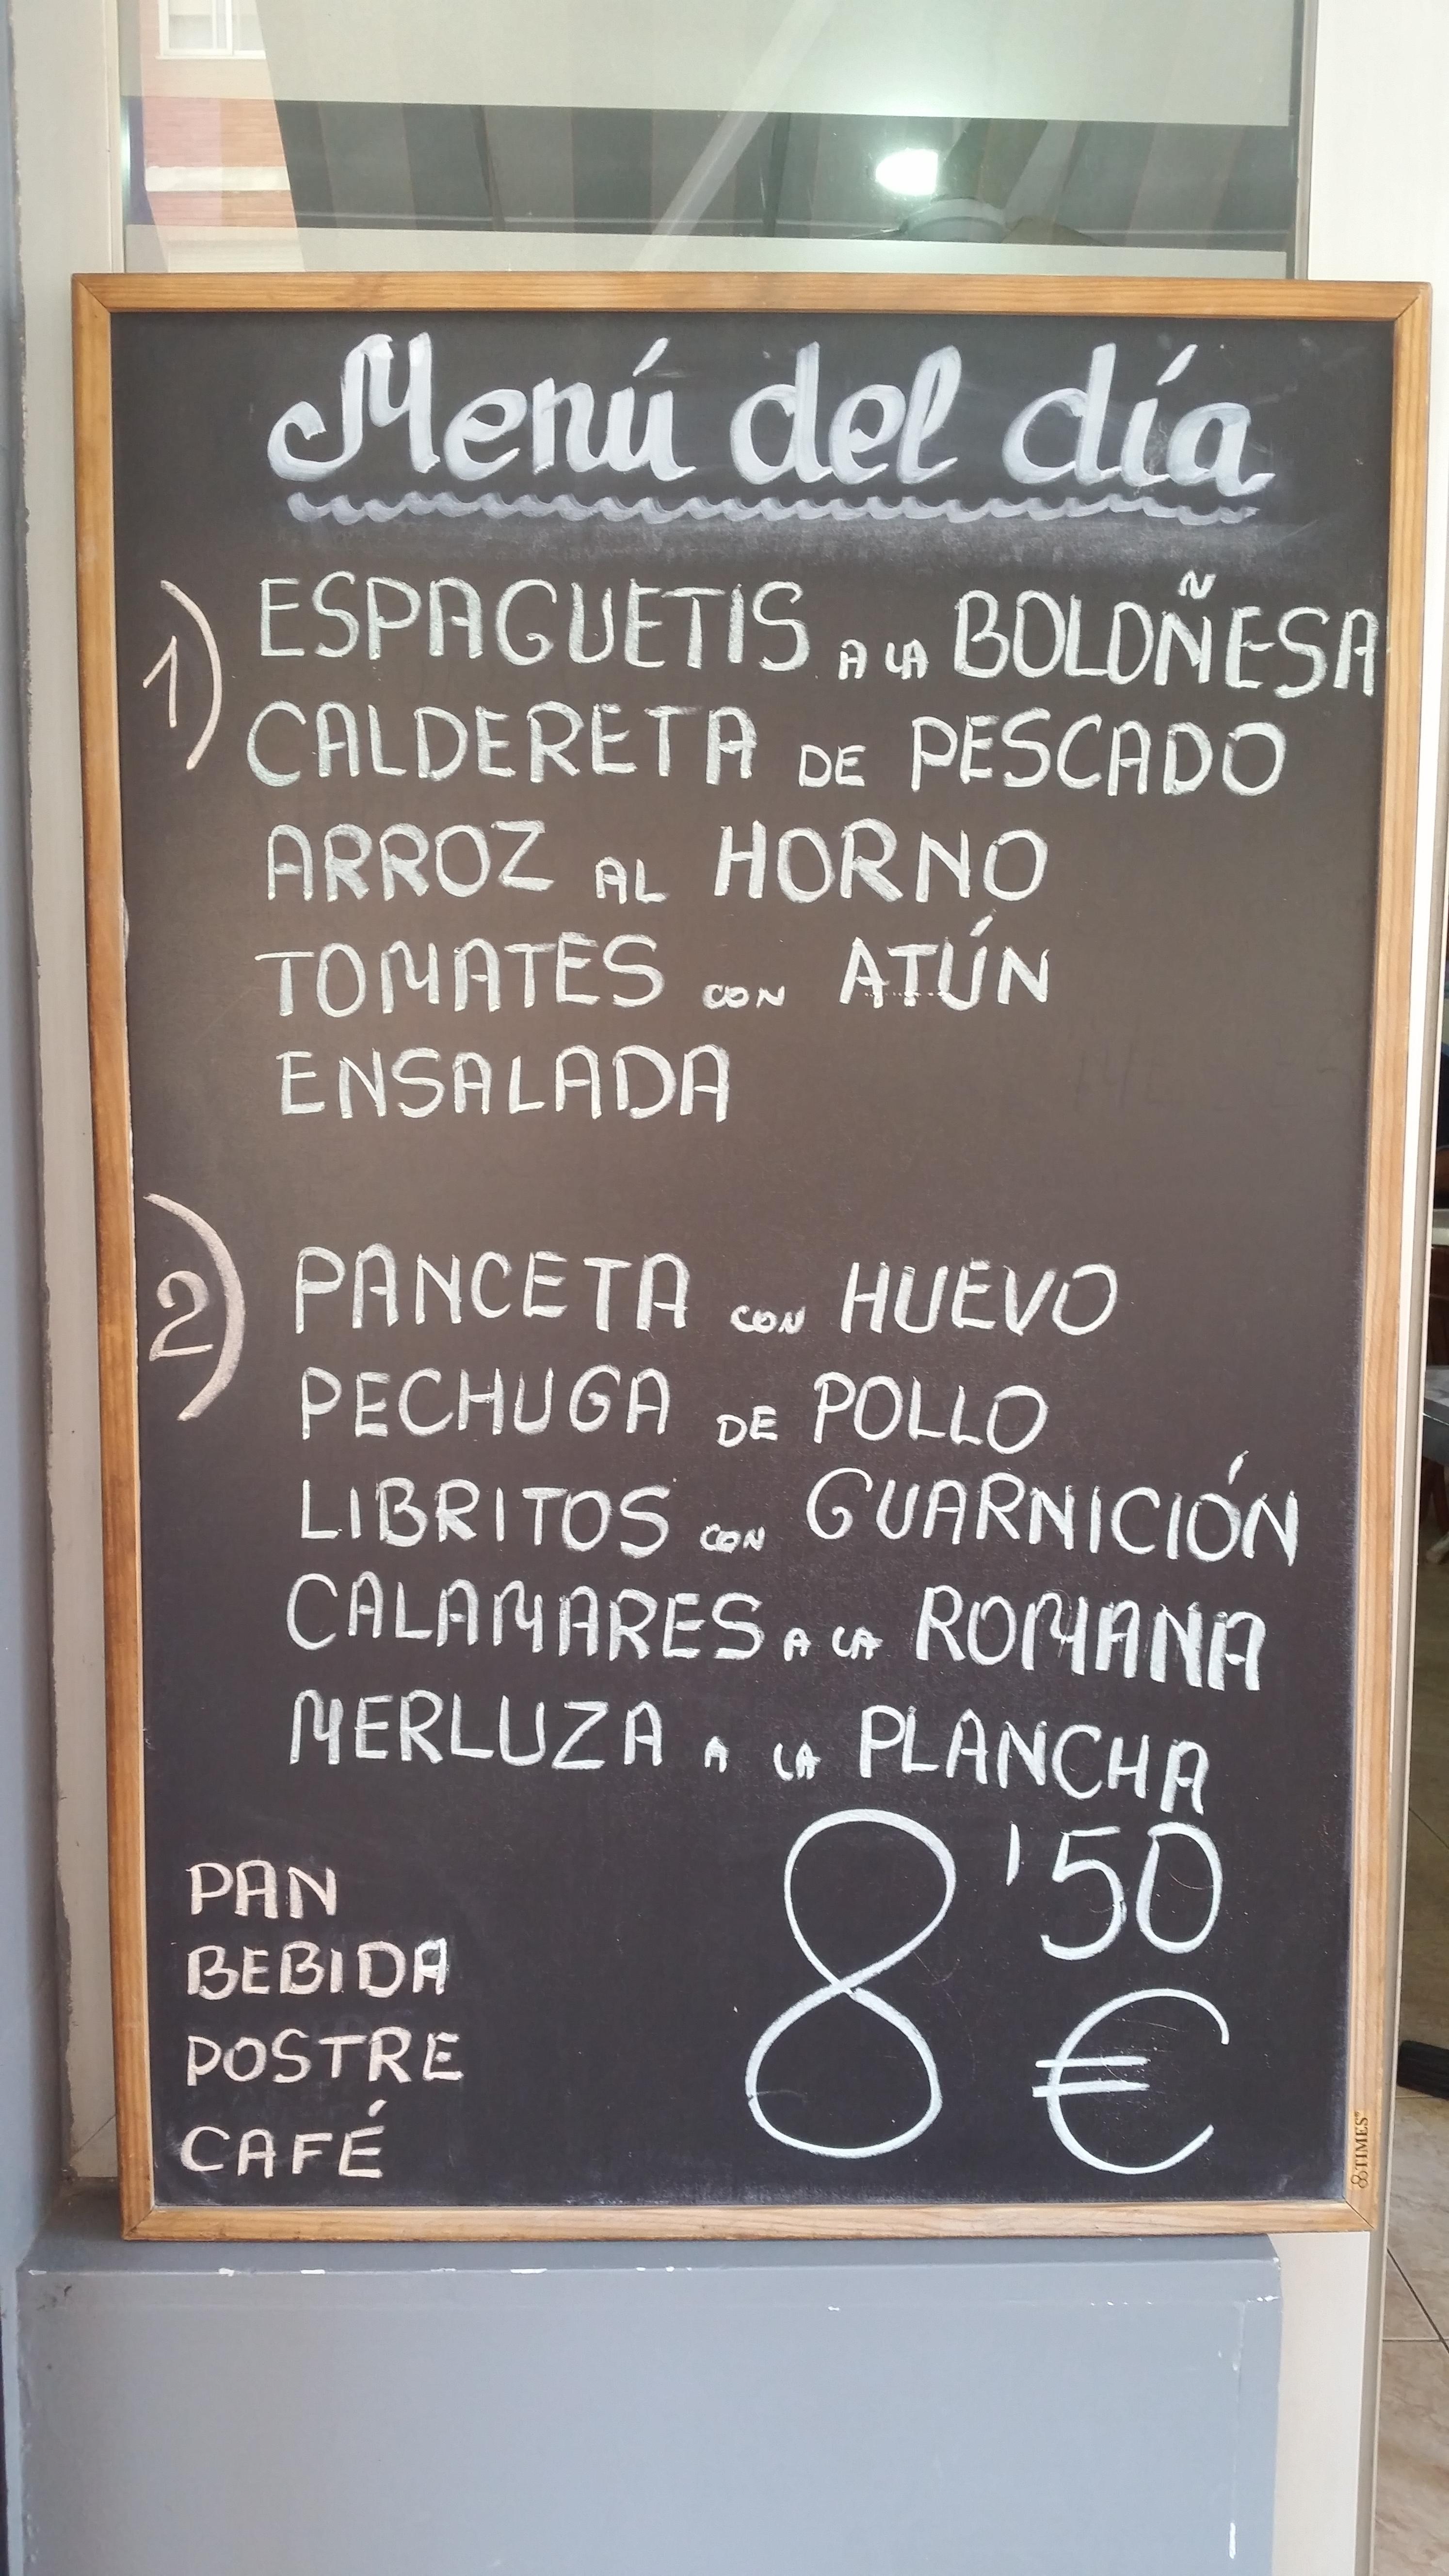 Menú del día
1) ESPAGUETIS A LA BOLOÑESA
CALDERETA DE PESCADO
ARROZ AL HORNO
TOMATES CON ATÚN
ENSALADA
2) PANCETA CON HUEVO
PECHUGA DE POLLO
LIBRITOS CON GUARNICIÓN
CALAMARES A LA ROMANA
MERLUZA A LA PLANCHA
PAN
BEBIDA
POSTRE
CAFÉ
8'50
€
TIMES